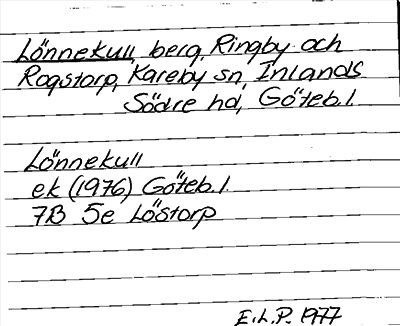 Lönnekull, berg, Ringby och
Rogstorp, Kareby sn, Inlands
Södre hd, Göteb. l.
Lönnekull
ek (1976) Göteb. l.
7B 5e Löstorp
E.L.P. 1977